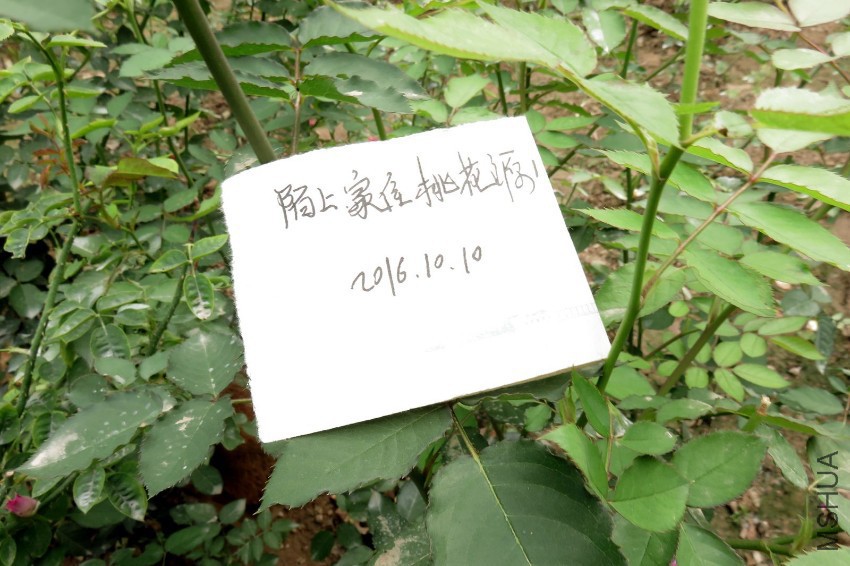 陌上家住桃花源
2016.10.10
MSHUA